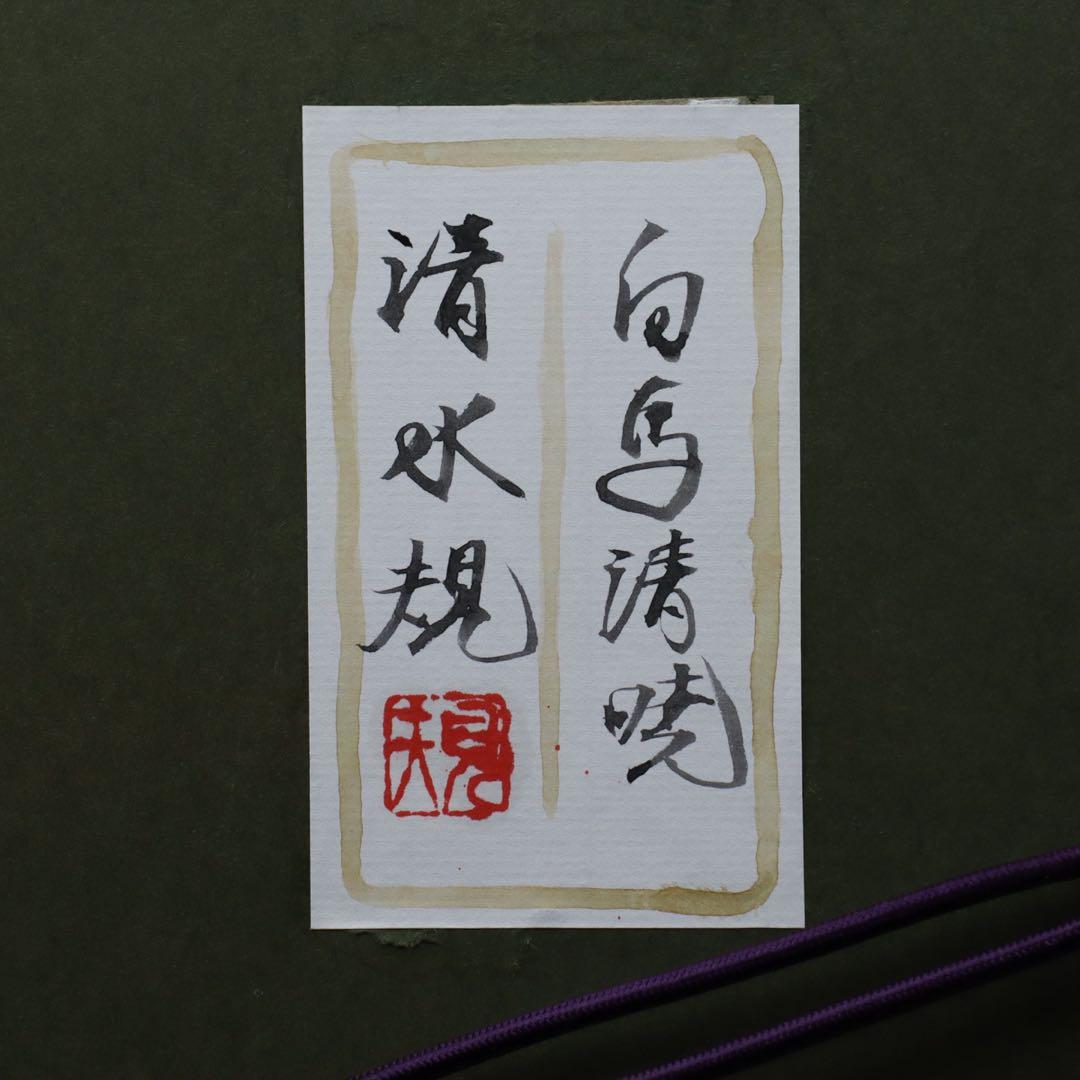 白馬清暁
清水規
規